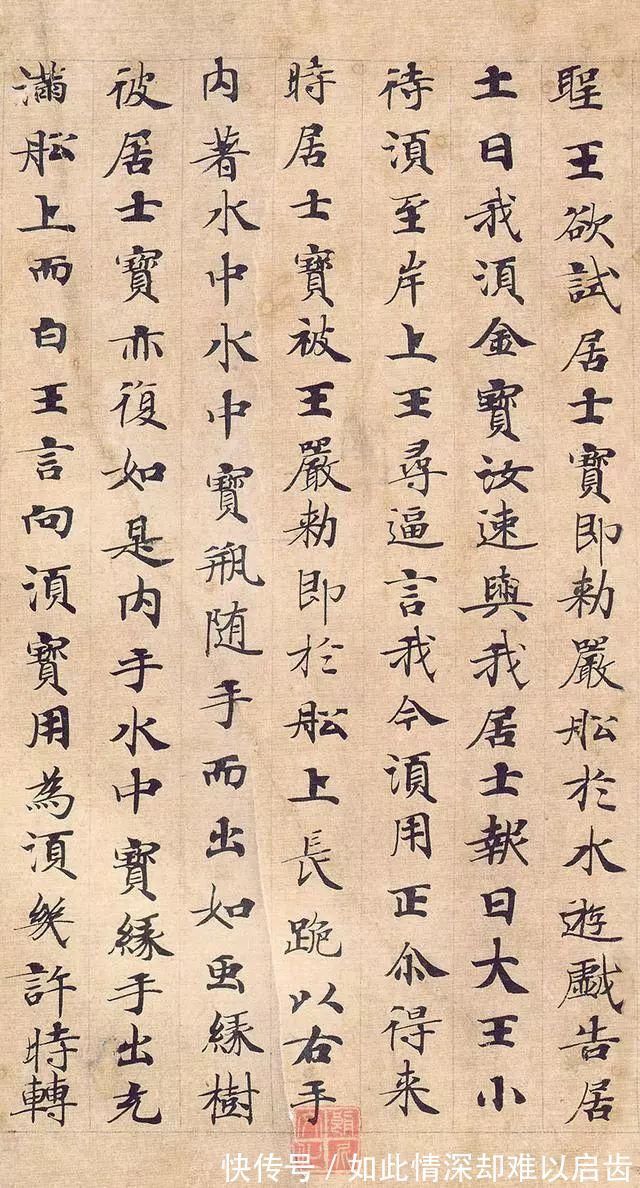 聖王欲試居士寶即勅嚴舩於水遊戲告居
士曰我須金寶汝速與我居士報曰大王小
待須至岸上王尋逼言我今須用正尒得来
時居士寶被王嚴勅即於舩上長跪以右手
内著水中水中寶瓶随手而出如虫緣樹
彼居士寶亦復如是内手水中寶緣手出充
滿舩上而白王言向須寶用為須幾許時轉
快传号/如此情深却难以启齿